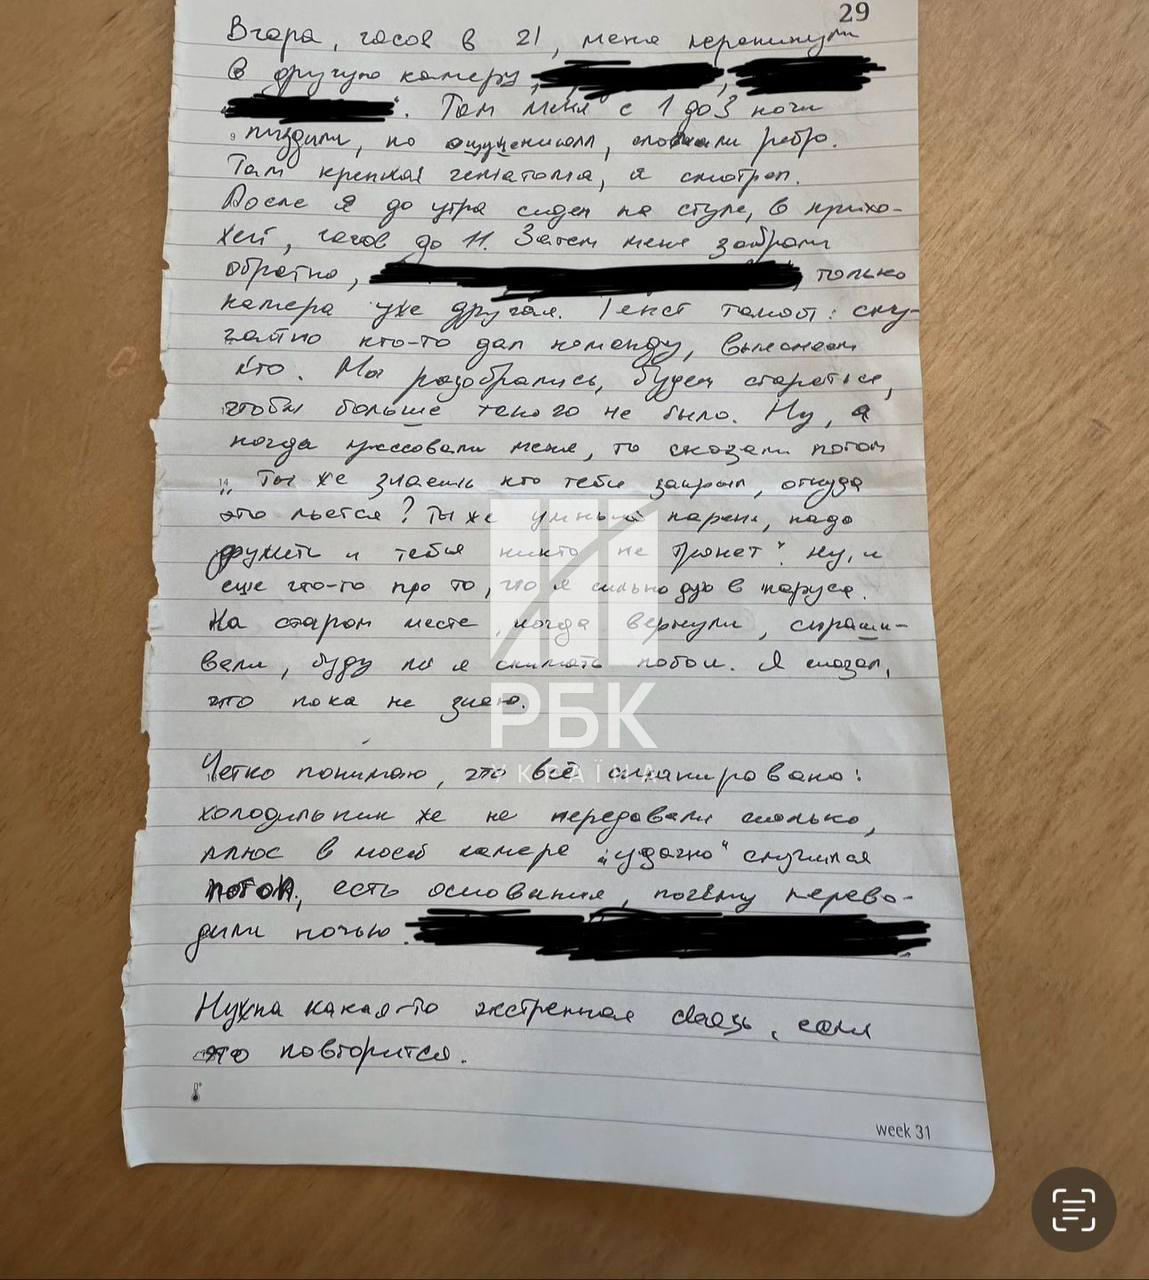 29
Вчора, часов в 21, меня перекинули
в другую камеру,
Там меня с 1 до 3 ночи
9 пиздили, по ощущениям, сломали ребро.
Там крепкая гематома, я смотрел.
После я до утра сидел на стуле, в прихо-
жей, часов до 11. Затем меня забрали
обратно, только
камера уже другая. Текст такой: слу-
чайно кто-то дал команду, выясняем
кто. Мы разобрались, будем стараться,
чтобы больше такого не было. Ну, а
когда прессовали меня, то сказали потом
14 „Ты же знаешь кто тебя закрыл, откуда
это льется? Ты же умный парень, надо
дружить и тебя никто не тронет" Ну, и
еще что-то про то, что я сильно дую в паруса.
На старом месте, когда вернули, спраши-
вали, буду ли я снимать побои. Я сказал,
что пока не знаю.
РБК
УКРАЇНА
Четко понимаю, что всё спланировано:
холодильник же не передавали сколько,
плюс в моей камере „удачно" случился
потоп, есть основания, почему перево-
дили ночью.
Нужна какая-то экстренная связь, если
это повторится.
week 31